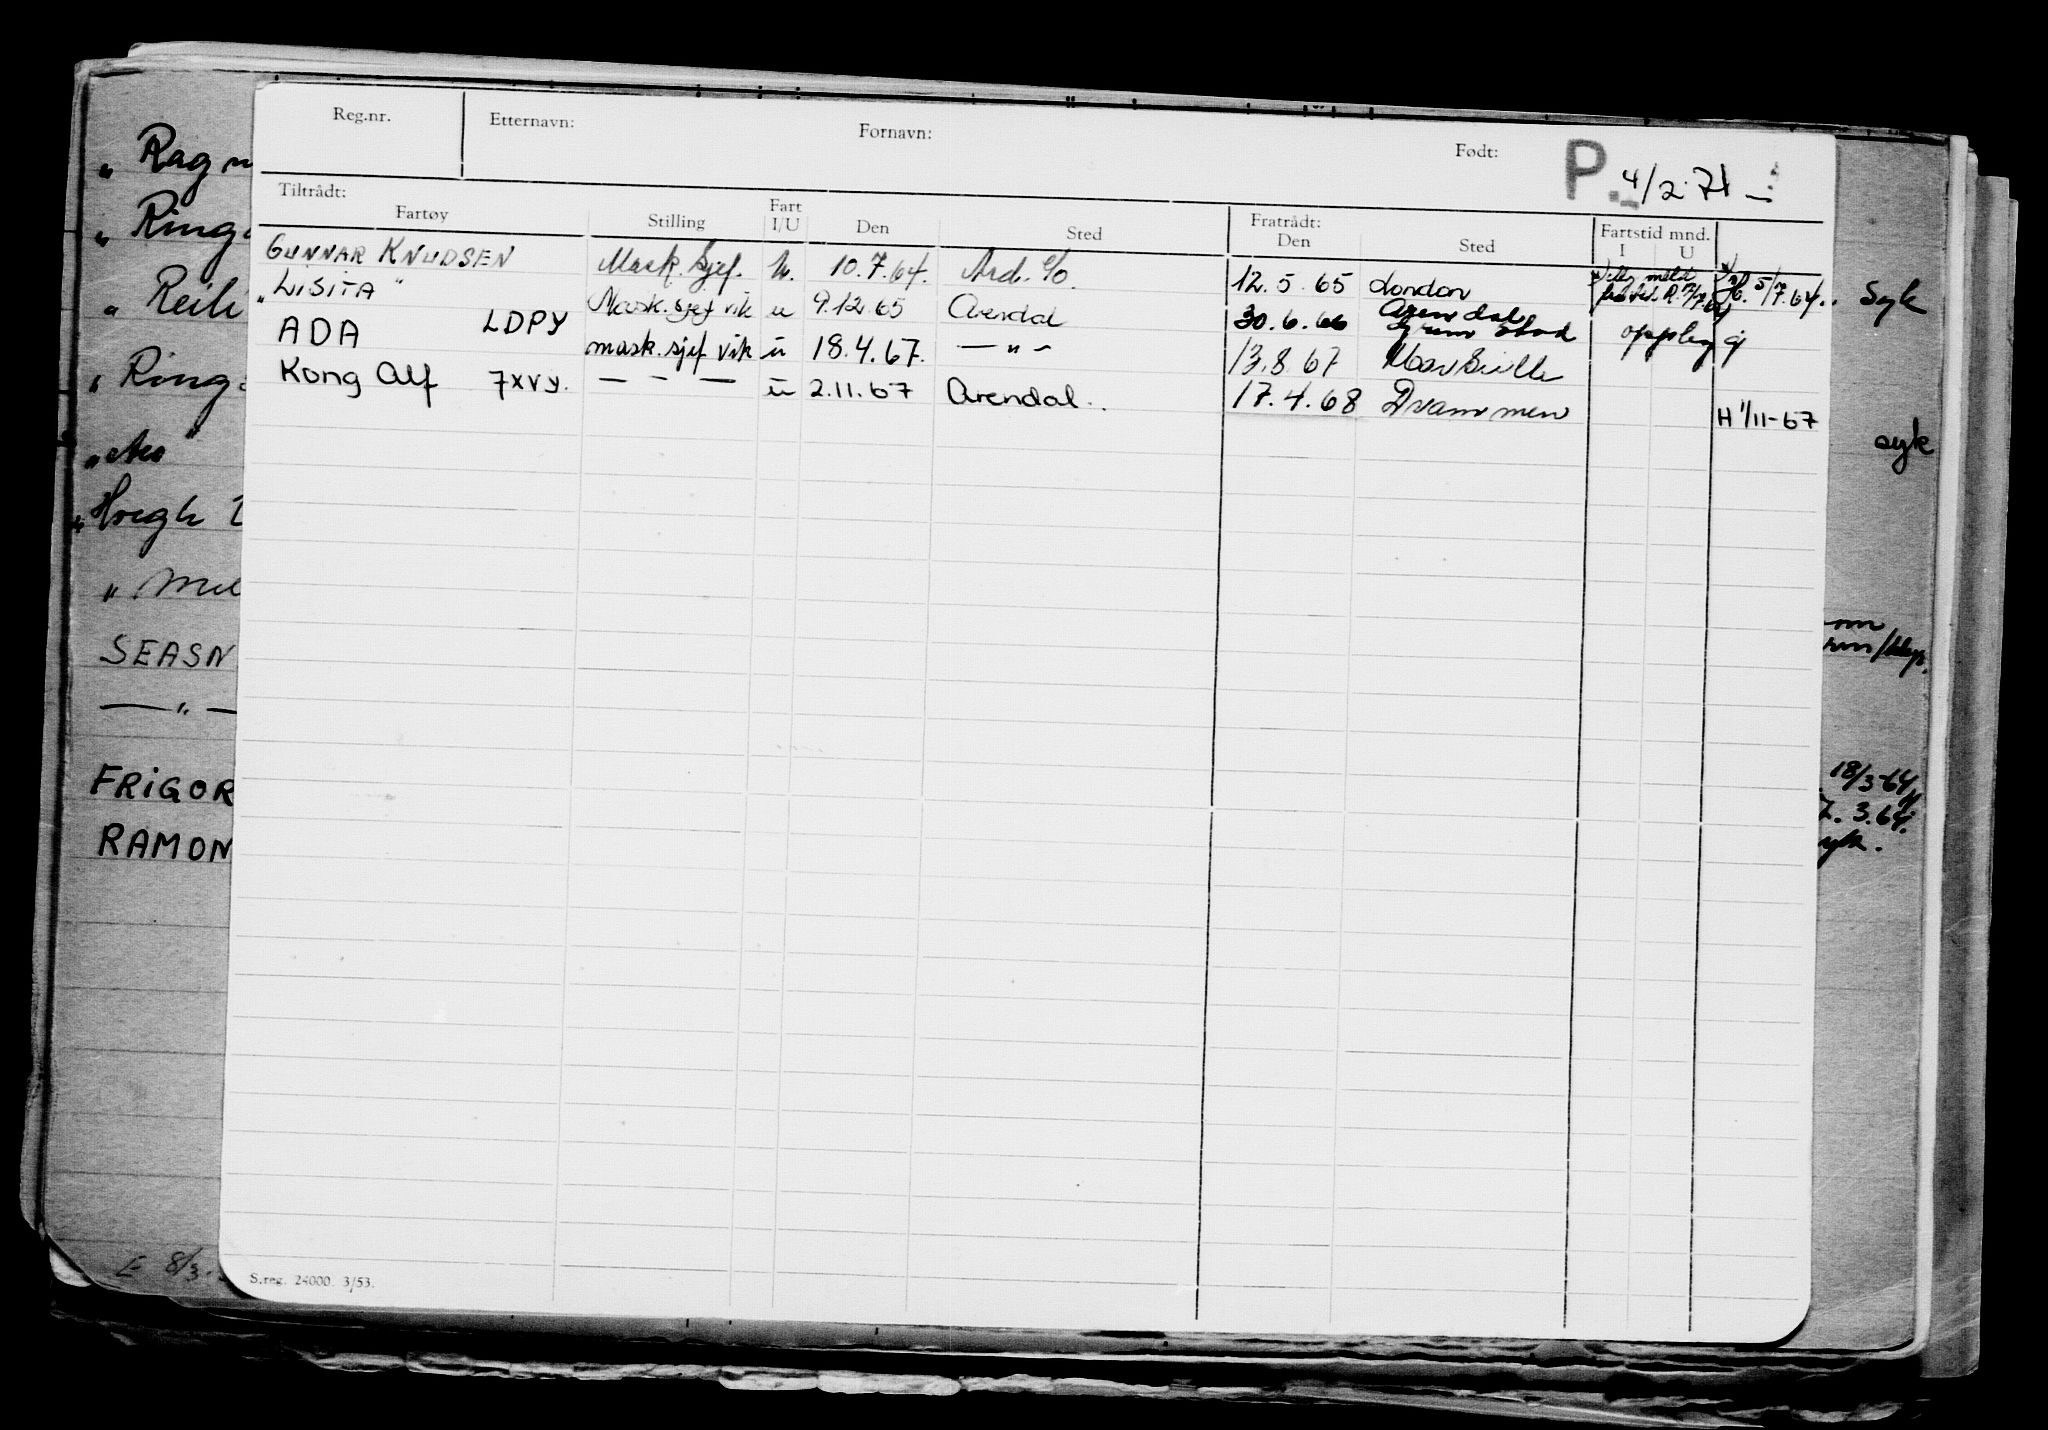 Reg.nr. Etternavn: Fornavn: Født: P. 4/2.71
Tiltrådt: Fratrådt:
Fartøy Stilling Fart I/U Den Sted Den Sted Fartstid mnd. I U
GUNNAR KNUDSEN Mask.sjef. U. 10.7.64. Ard. 12.5.65 London 5/7.64.
"LISITA" Mask.sjef vik u 9.12.65 Arendal 30.6.66 Arendal Grimstad opplag
ADA LDPY mask.sjef vik u 18.4.67. — " — 13.8.67 Marseille
Kong Alf 7XVY. — - — u 2.11.67 Arendal. 17.4.68 Drammen H 1/11-67
S.reg. 24000. 3/53.
" Ragn
" Ring
" Reili
" Ring
Høegh
" Mel
SEASN
— " —
FRIGOR
RAMON
E 8/3.
Syk
syk
18/3-64
7.3.64.